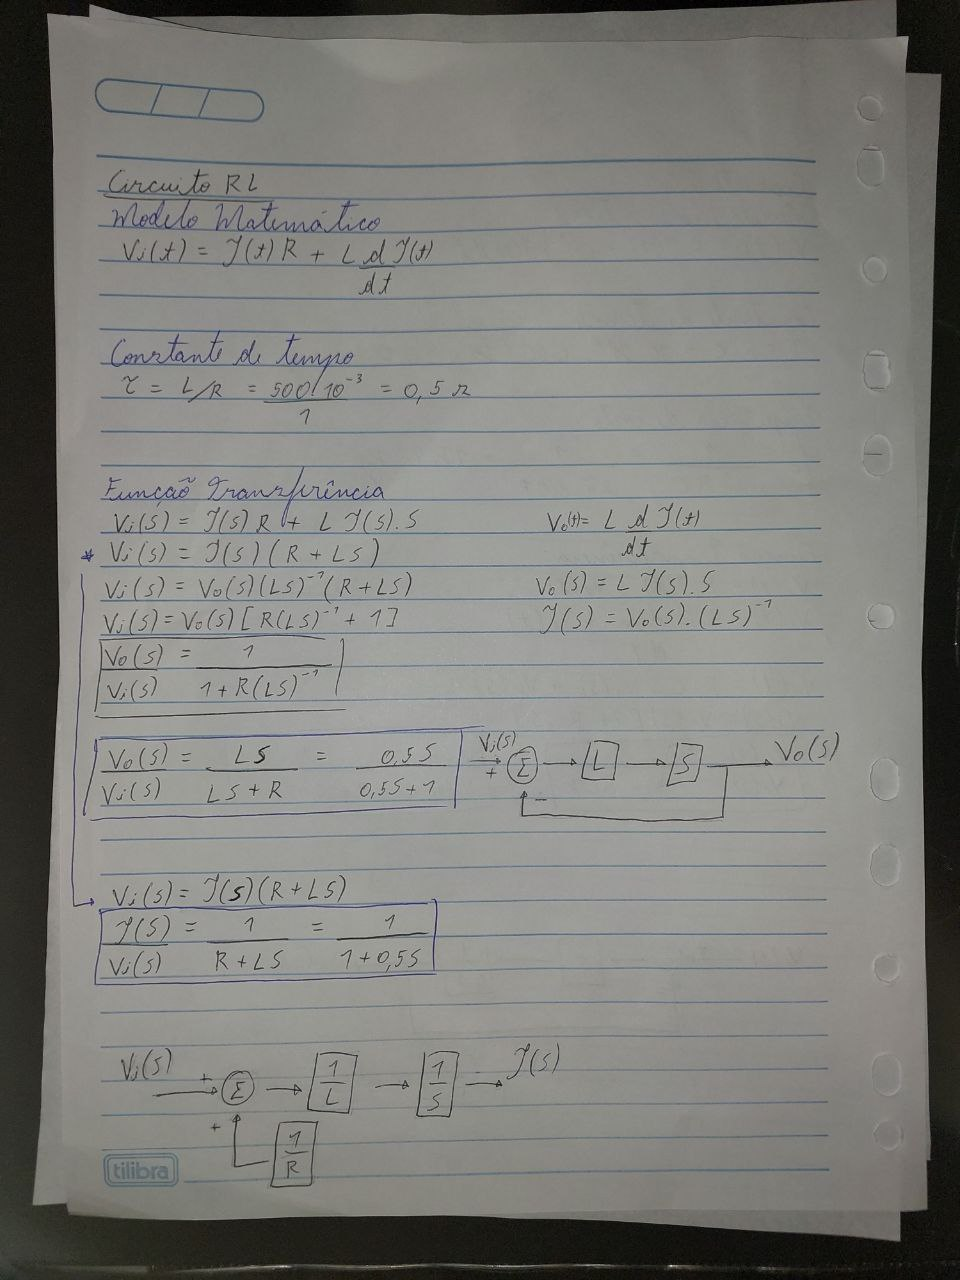 Circuito RL
Modelo Matemático
Vi(t) = I(t) R + L d I(t)
dt
Constante de tempo
τ = L/R = 500.10⁻³ = 0,5 s
1
Função Transferência
Vi(s) = I(s) R + L I(s).S
* Vi(s) = I(s) (R + LS)
Vi(s) = Vo(s)(LS)⁻¹(R+LS)
Vi(s) = Vo(s)[R(LS)⁻¹ + 1]
Vo(s) = 1
Vi(s) 1 + R(LS)⁻¹
Vo(t) = L d I(t)
dt
Vo(s) = L I(s).S
I(s) = Vo(s).(LS)⁻¹
Vo(s) = LS = 0,5S
Vi(s) LS+R 0,5S+1
Vi(s) + Σ L S Vo(s)
−
Vi(s) = I(s)(R+LS)
I(s) = 1 = 1
Vi(s) R+LS 1+0,5S
Vi(s) + Σ 1 1 I(s)
L S
+ 1
R
tilibra